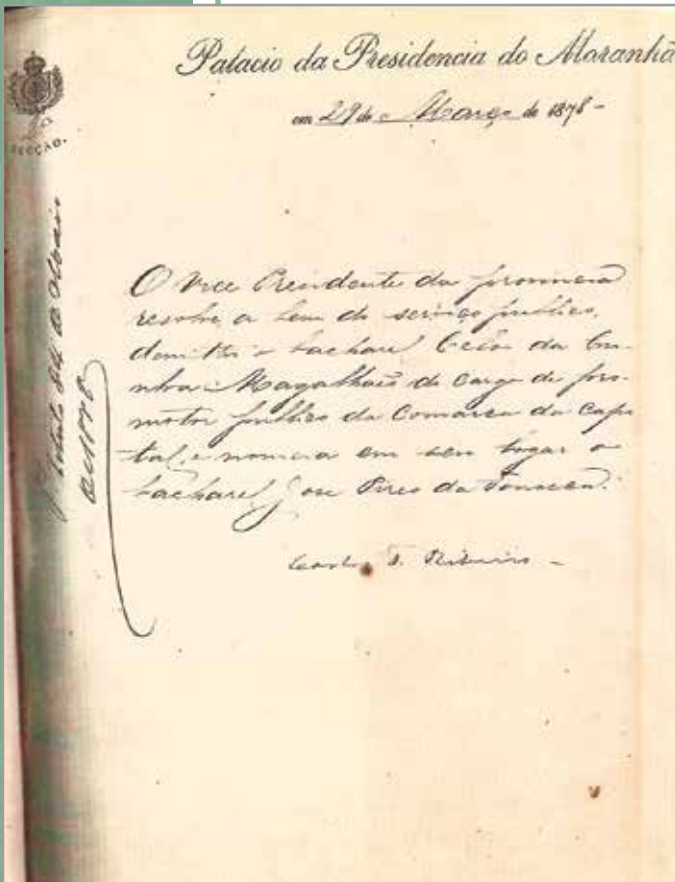 Palacio da Presidencia do Maranhã
em 29 de Março de 1878 -
SECÇÃO.
O Vice Presidente da provincia
resolve a bem do serviço publico,
demittir o bacharel Celso da Cu-
nha Magalhães do cargo de pro-
motor publico da Comarca da Capi
tal, e nomeia em seu logar o
bacharel José Pires da Fonseca.
Carlos F. Ribeiro -
de 1878